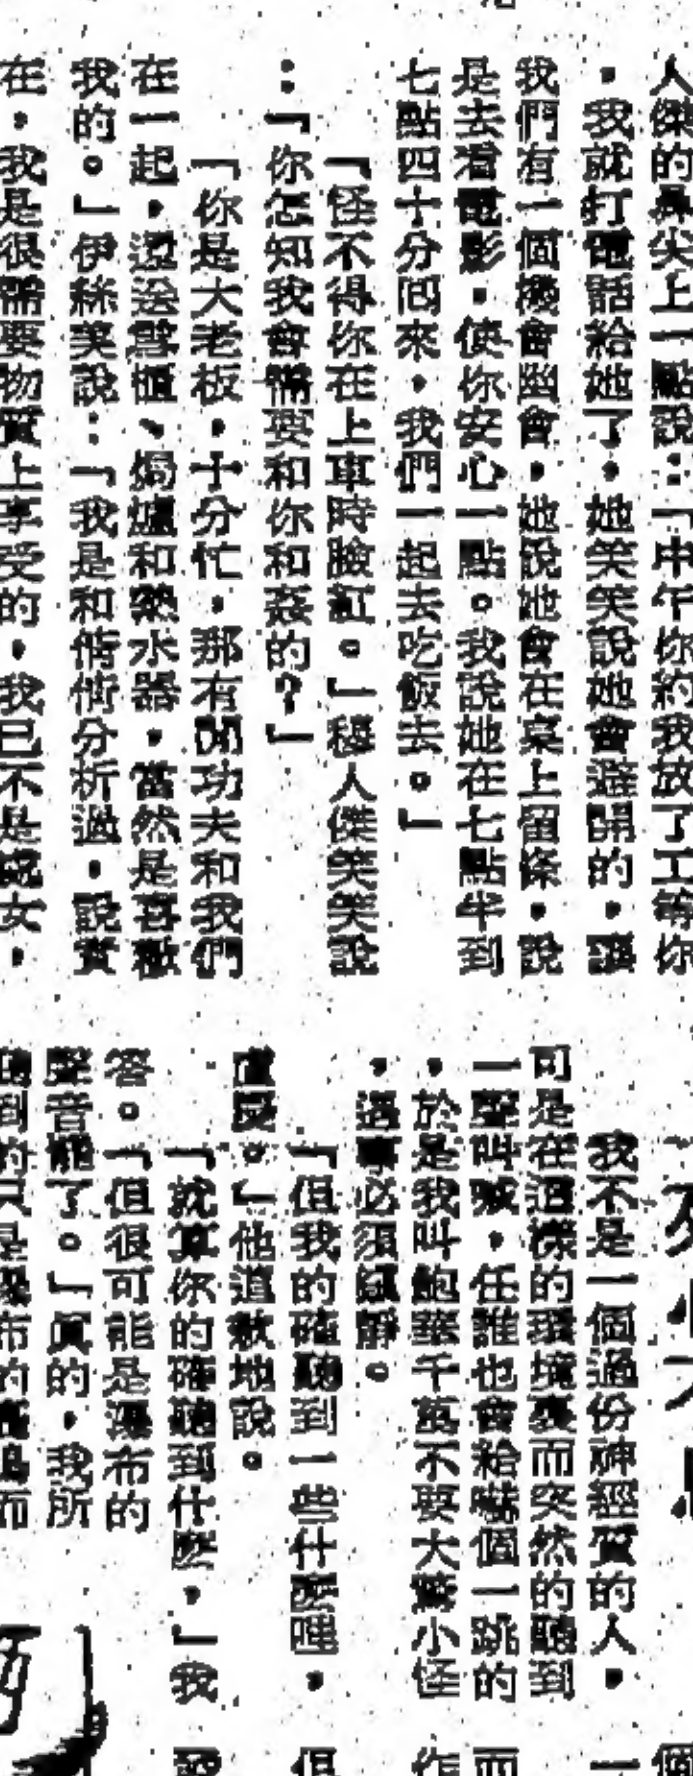 人傑的鼻尖上一點說：「中午你約我放了工等你
，我就打電話給她了，她笑笑說她會避開的，讓
我們有一個機會幽會，她說她會在桌上留條，說
是去看電影，使你安心一點。我說她在七點半到
七點四十分回來，我們一起去吃飯去。」
「怪不得你在上車時臉紅。」穆人傑笑笑說
：「你怎知我會需要和你和姦的？」
「你是大老板，十分忙，那有閒功夫和我們
在一起，還送雪櫃、焗爐和熱水器，當然是喜歡
我的。」伊絲笑說：「我是和倩倩分析過，說實
在，我是很需要物質上享受的，我已不是處女，
我不是一個過份神經質的人，
可是在這樣的環境裏而突然的聽到
一聲叫喊，任誰也會給嚇個一跳的
，於是我叫鮑華千萬不要大驚小怪
，遇事必須鎮靜。
「但我的確聽到一些什麼哩，
直覺。」他道歉地說。
「就算你的確聽到什麼，」我
答。「但很可能是瀑布的
聲音罷了。」真的，我所
聽到的只是瀑布的